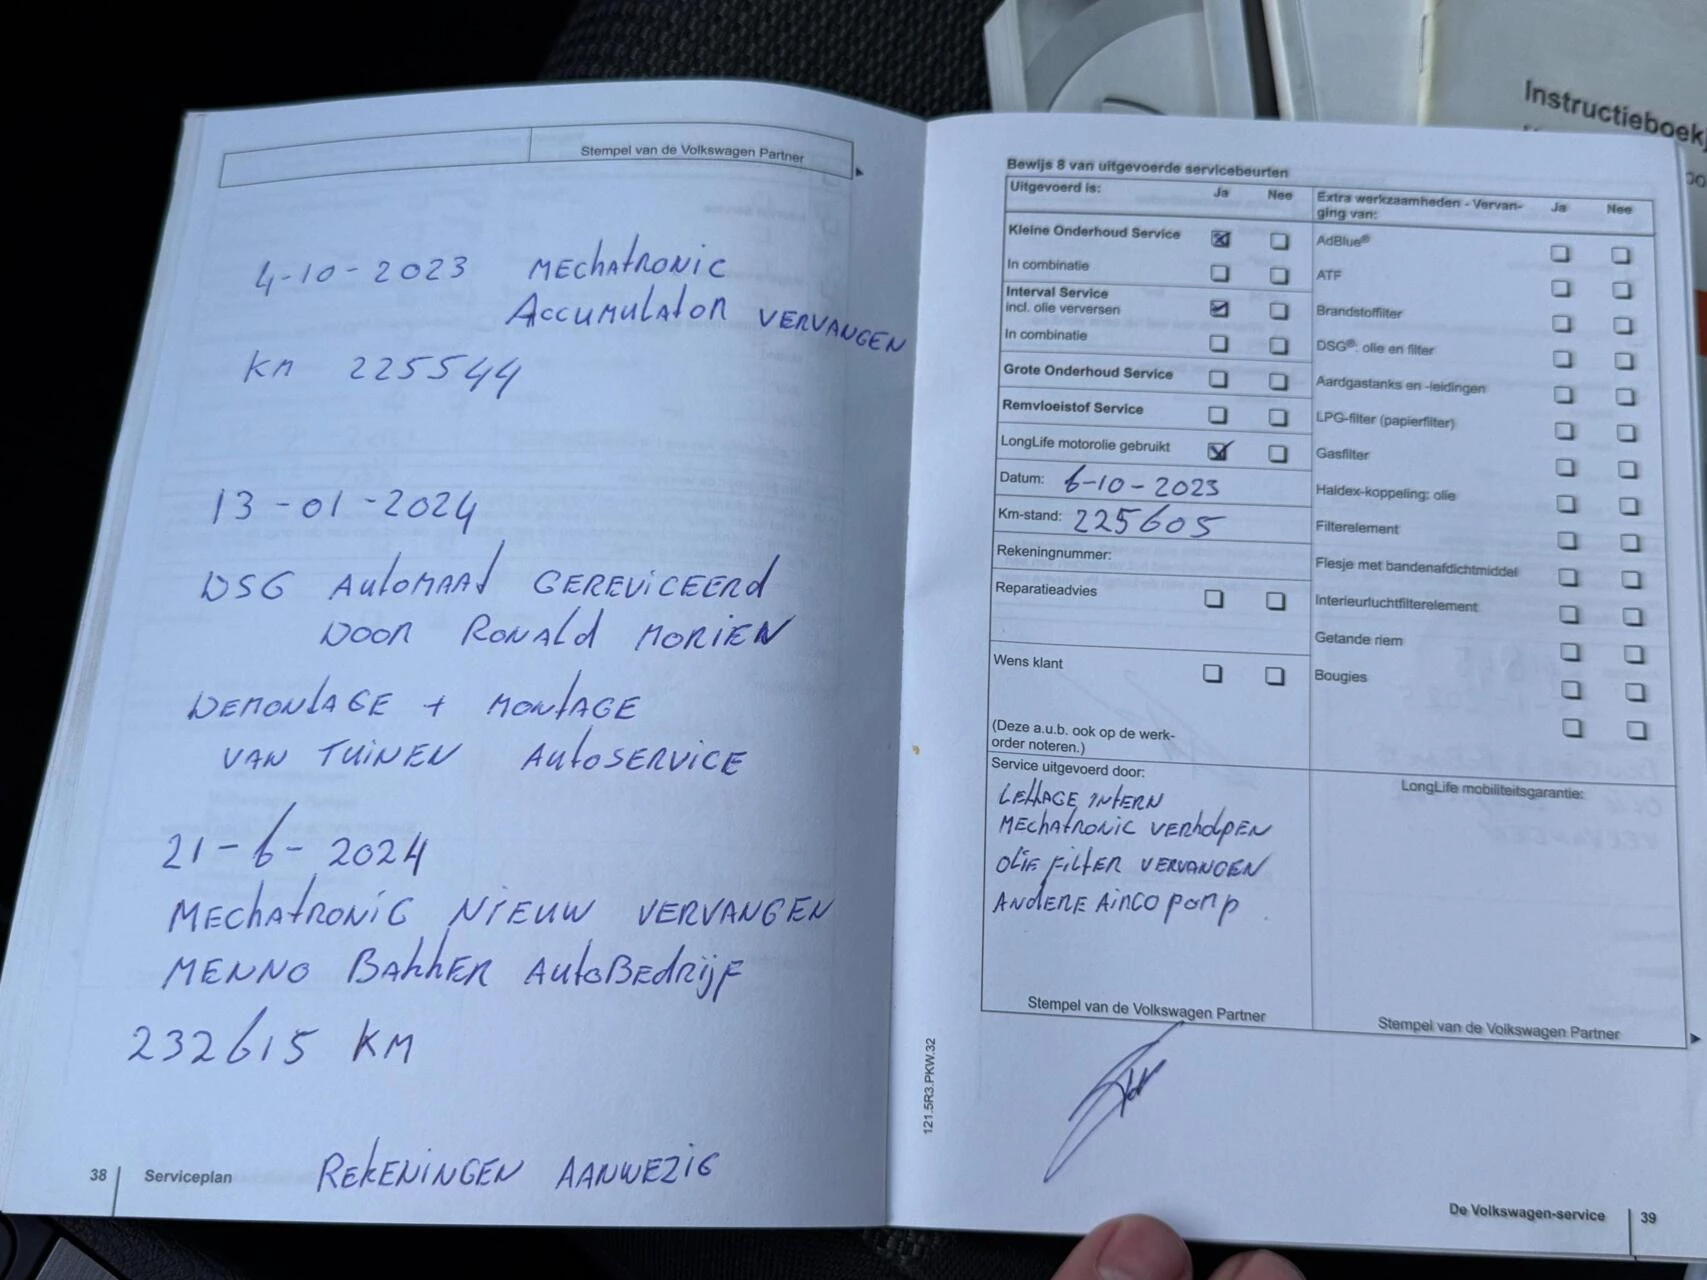 Stempel van de Volkswagen Partner
4-10-2023 MEchatRONIC
ACCUMULATOR VERVANGEN
KM 225544
13-01-2024
DSG AutoMAAt GEREVICEERD
DOOR RONALD MORIEN
DEMONTAGE + MONTAGE
VAN TUINEN AutoSERVICE
21-6-2024
MECHATRONIC NIEUW VERVANGEN
MENNO BAKKER AutoBEDRIJF
232615 KM
REKENINGEN AANWEZIG
38 Serviceplan
Instructieboek
Bewijs 8 van uitgevoerde servicebeurten
Uitgevoerd is: Ja Nee
Kleine Onderhoud Service
In combinatie
Interval Service
incl. olie verversen
In combinatie
Grote Onderhoud Service
Remvloeistof Service
LongLife motorolie gebruikt
Datum: 6-10-2023
Km-stand: 225605
Rekeningnummer:
Reparatieadvies
Wens klant
(Deze a.u.b. ook op de werk-
order noteren.)
Extra werkzaamheden - Vervan-
ging van: Ja Nee
AdBlue®
ATF
Brandstoffilter
DSG®: olie en filter
Aardgastanks en -leidingen
LPG-filter (papierfilter)
Gasfilter
Haldex-koppeling: olie
Filterelement
Flesje met bandenafdichtmiddel
Interieurluchtfilterelement
Getande riem
Bougies
Service uitgevoerd door:
LEKKAGE INTERN
MECHATRONIC VERHOLPEN
OLIE FILTER VERVANGEN
ANDERE AIRCO POMP
Stempel van de Volkswagen Partner
LongLife mobiliteitsgarantie:
Stempel van de Volkswagen Partner
121.5R3.PKW.32
De Volkswagen-service 39